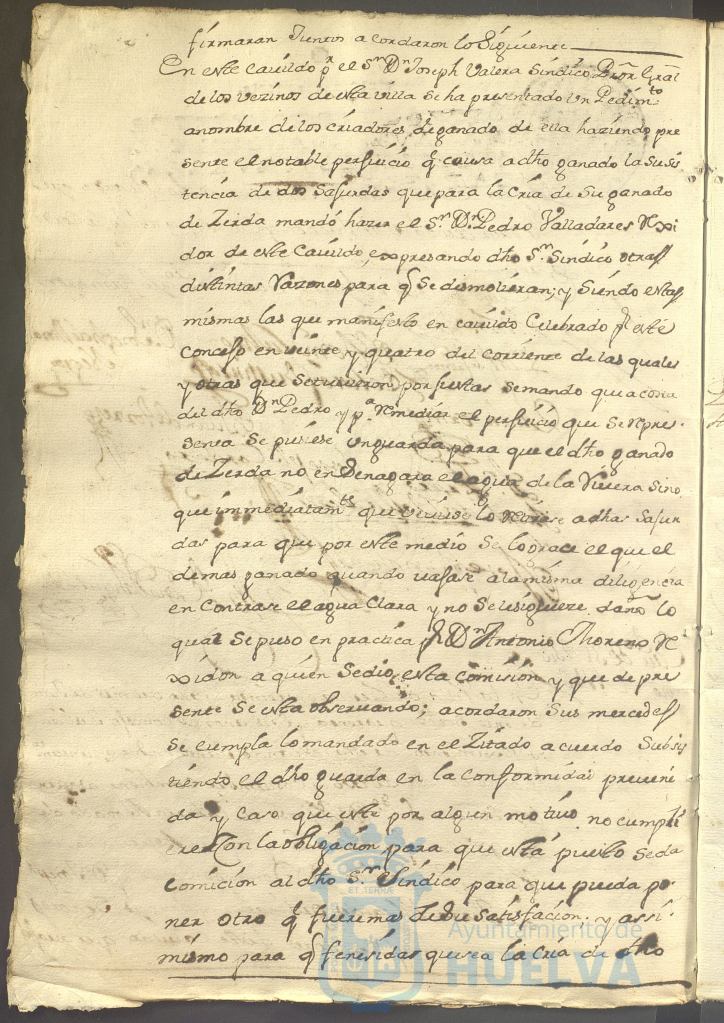 firmaran Juntos acordaron lo Siguiente
En este Cavildo pr el Sr. Dn Joseph Valera Sindico Pror Gral
de los vezinos de esta villa Se ha presentado Un Pedimto
anombre de los criadores de ganado de ella haziendo pre
sente el notable perjuicio q causa a dho ganado la Susis
tencia de dos Sajurdas que para la Cria de Su ganado
de Zerda mandó hazer el Sr. Dn. Pedro Valladares Rexi
dor de este Cavildo, expresando dho Sr. Sindico otras
distintas Razones para q Se dismolieran; y Siendo estas
mismas las que manifesto en cavildo Celebrado pr este
Consejo en veinte y quatro del corriente de las quales
y otras que Setuvieron por justas Semando que a costa
del dho Dn Pedro y pa Remediar el perjuicio que Se repre
senta Se pusiese un guarda para que el dho ganado
de Zerda no en Senagara el agua de la Rivera Sino
que immediatamte que viviese lo Retirase a dhas Sajur
das para que por este medio Se lograce el que el
demas ganado quando vajase ala misma diligencia
en Contrase el agua Clara y no Selesiguiere daño lo
qual Sepuso en practica pr Dn Antonio Moreno Re
xidor a quien Sedio, esta Comision y que de pre
sente Se esta observando; acordaron Sus mercedes
Se cumpla lo mandado en el Zitado acuerdo Subsis
tiendo el dho guarda en la Conformidad preveni
da y Caso que este por algun motivo no cumpli
ere Con la obligacion para que esta puesto Seda
Comicion al dho Sr. Sindico para que pueda po
ner otro q fuere mas de Su Satisfacion; y assi
mismo para q fenesidas que sea la Cria de dho
ET TERRA
Ayuntamiento de
HUELVA